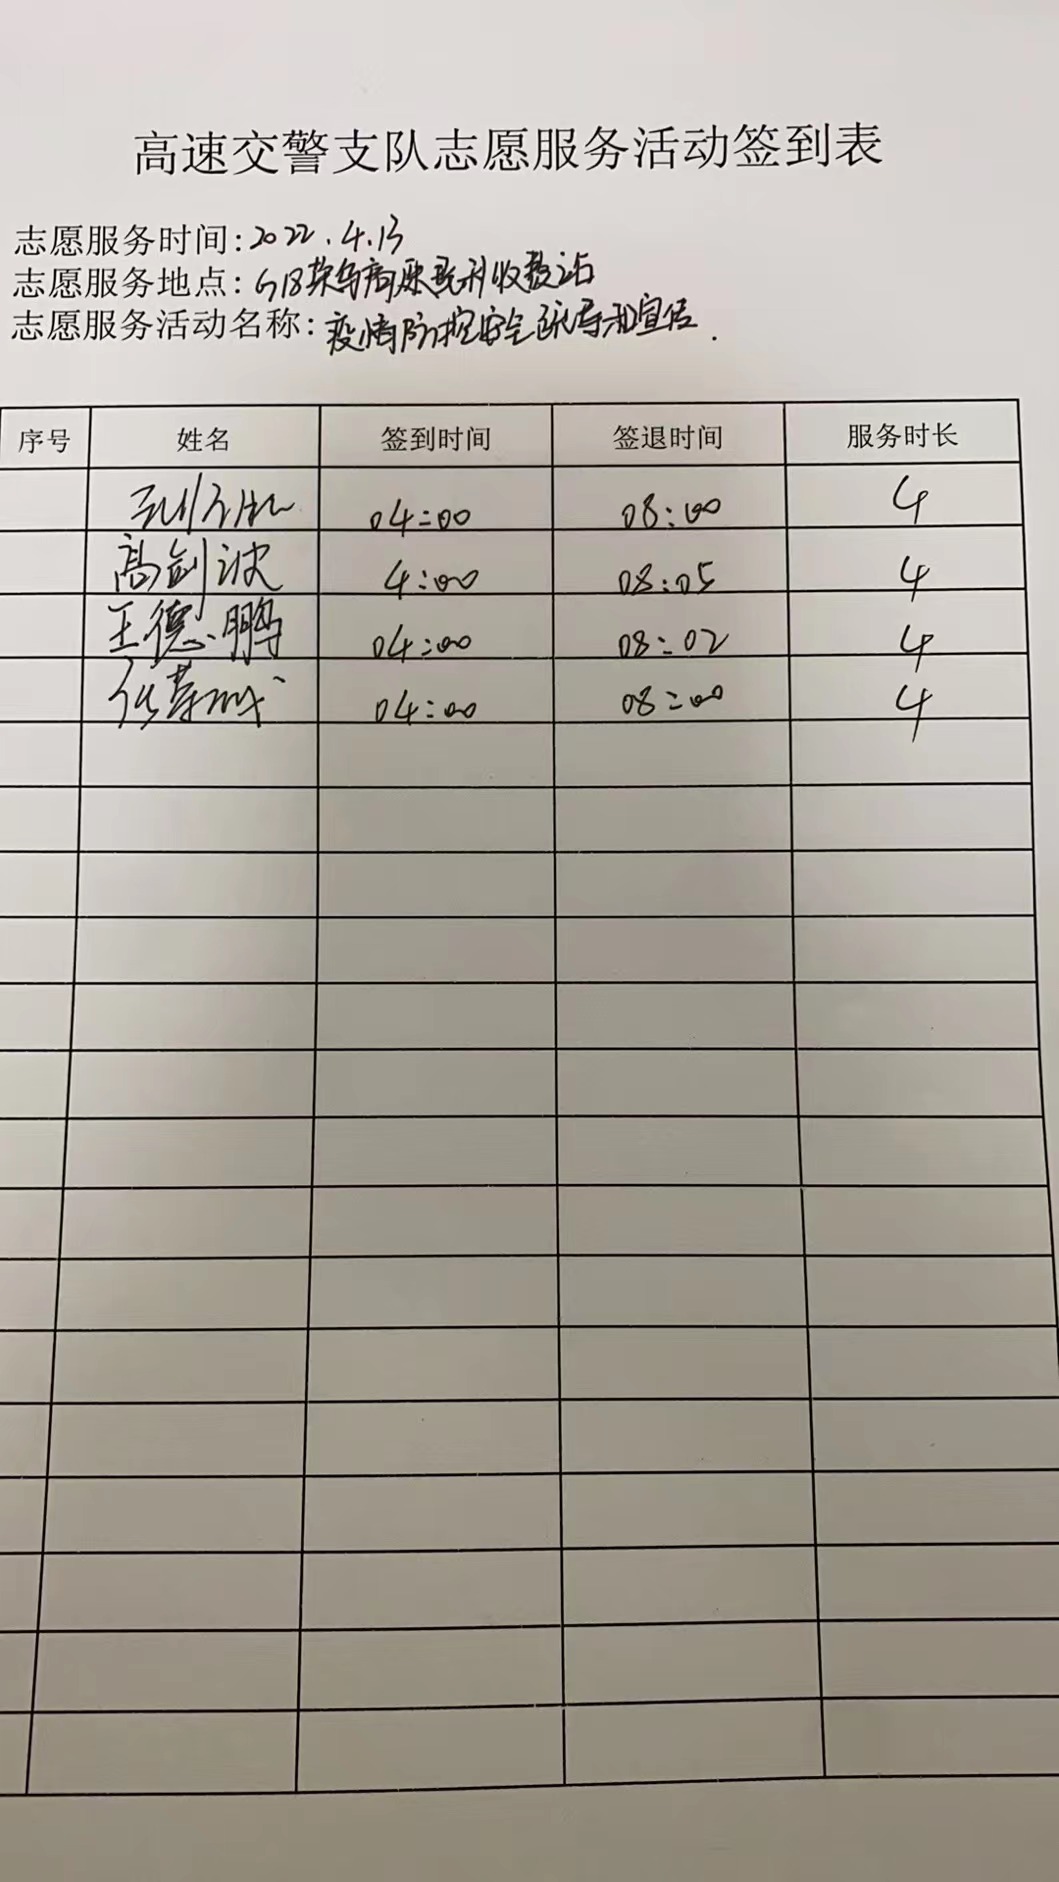 高速交警支队志愿服务活动签到表
志愿服务时间:2022.4.13
志愿服务地点:G18荣乌高速 收费站
志愿服务活动名称:疫情防控安全疏导和宣传.
序号 姓名 签到时间 签退时间 服务时长
04:00 08:00 4
高剑波 4:00 08:05 4
王德鹏 04:00 08:02 4
04:00 08:00 4